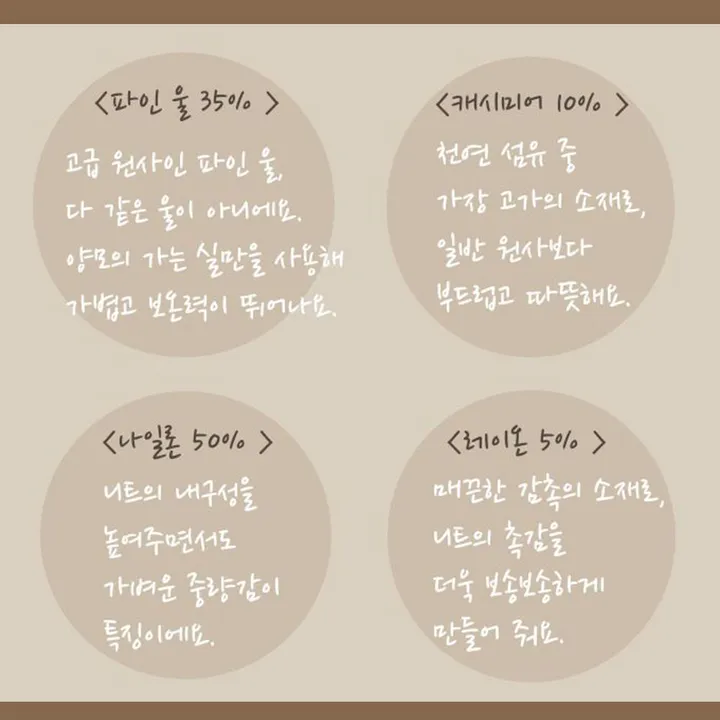 <파인 울 35%>
고급 원사인 파인 울,
다 같은 울이 아니에요.
양모의 가는 실만을 사용해
가볍고 보온력이 뛰어나요.
<캐시미어 10%>
천연 섬유 중
가장 고가의 소재로,
일반 원사보다
부드럽고 따뜻해요.
<나일론 50%>
니트의 내구성을
높여주면서도
가벼운 중량감이
특징이에요.
<레이온 5%>
매끈한 감촉의 소재로,
니트의 촉감을
더욱 보송보송하게
만들어 줘요.